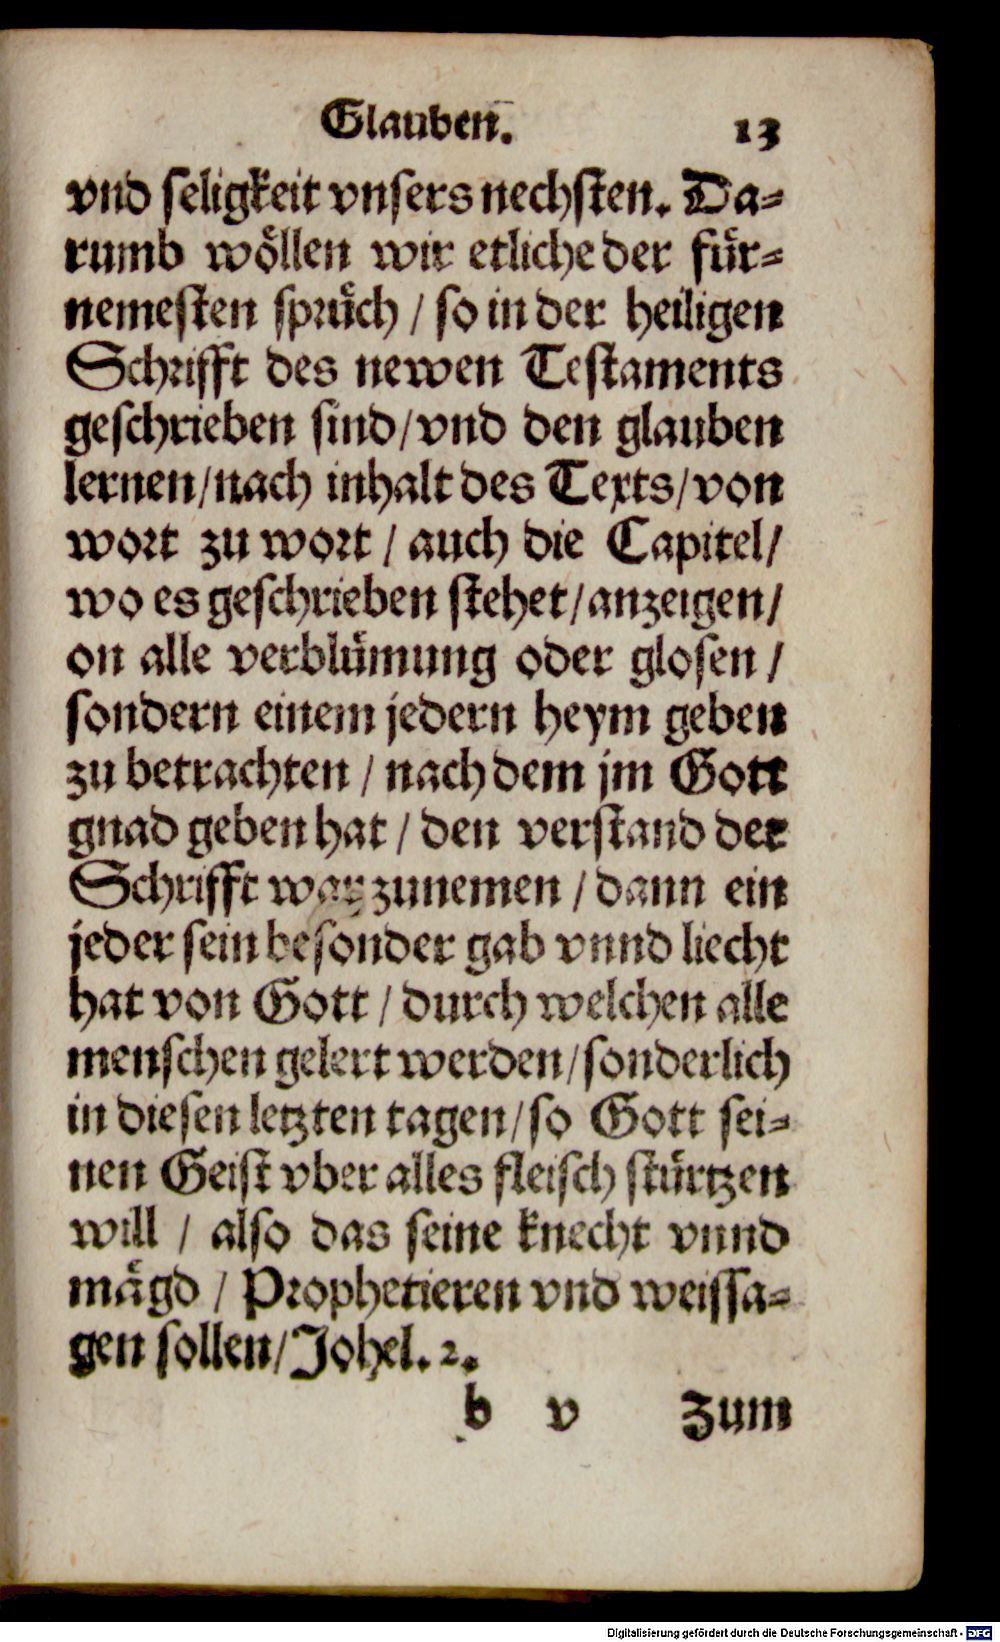 Glauben. 13
vnd seligkeit vnsers nechsten. Da=
rumb wöllen wir etliche der für=
nemesten sprüch / so in der heiligen
Schrifft des newen Testaments
geschrieben sind/vnd den glauben
lernen/nach inhalt des Texts/von
wort zu wort / auch die Capitel/
wo es geschrieben stehet/anzeigen/
on alle verblümung oder glosen /
sondern einem jedern heym geben
zu betrachten / nach dem jm Gott
gnad geben hat / den verstand der
Schrifft warzunemen / dann ein
jeder sein besonder gab vnnd liecht
hat von Gott / durch welchen alle
menschen gelert werden/sonderlich
in diesen letzten tagen/so Gott sei=
nen Geist vber alles fleisch stürtzen
will / also das seine knecht vnnd
mägd / Prophetieren vnd weissa=
gen sollen/Johel. 2.
b v Zum
Digitalisierung gefördert durch die Deutsche Forschungsgemeinschaft - DFG